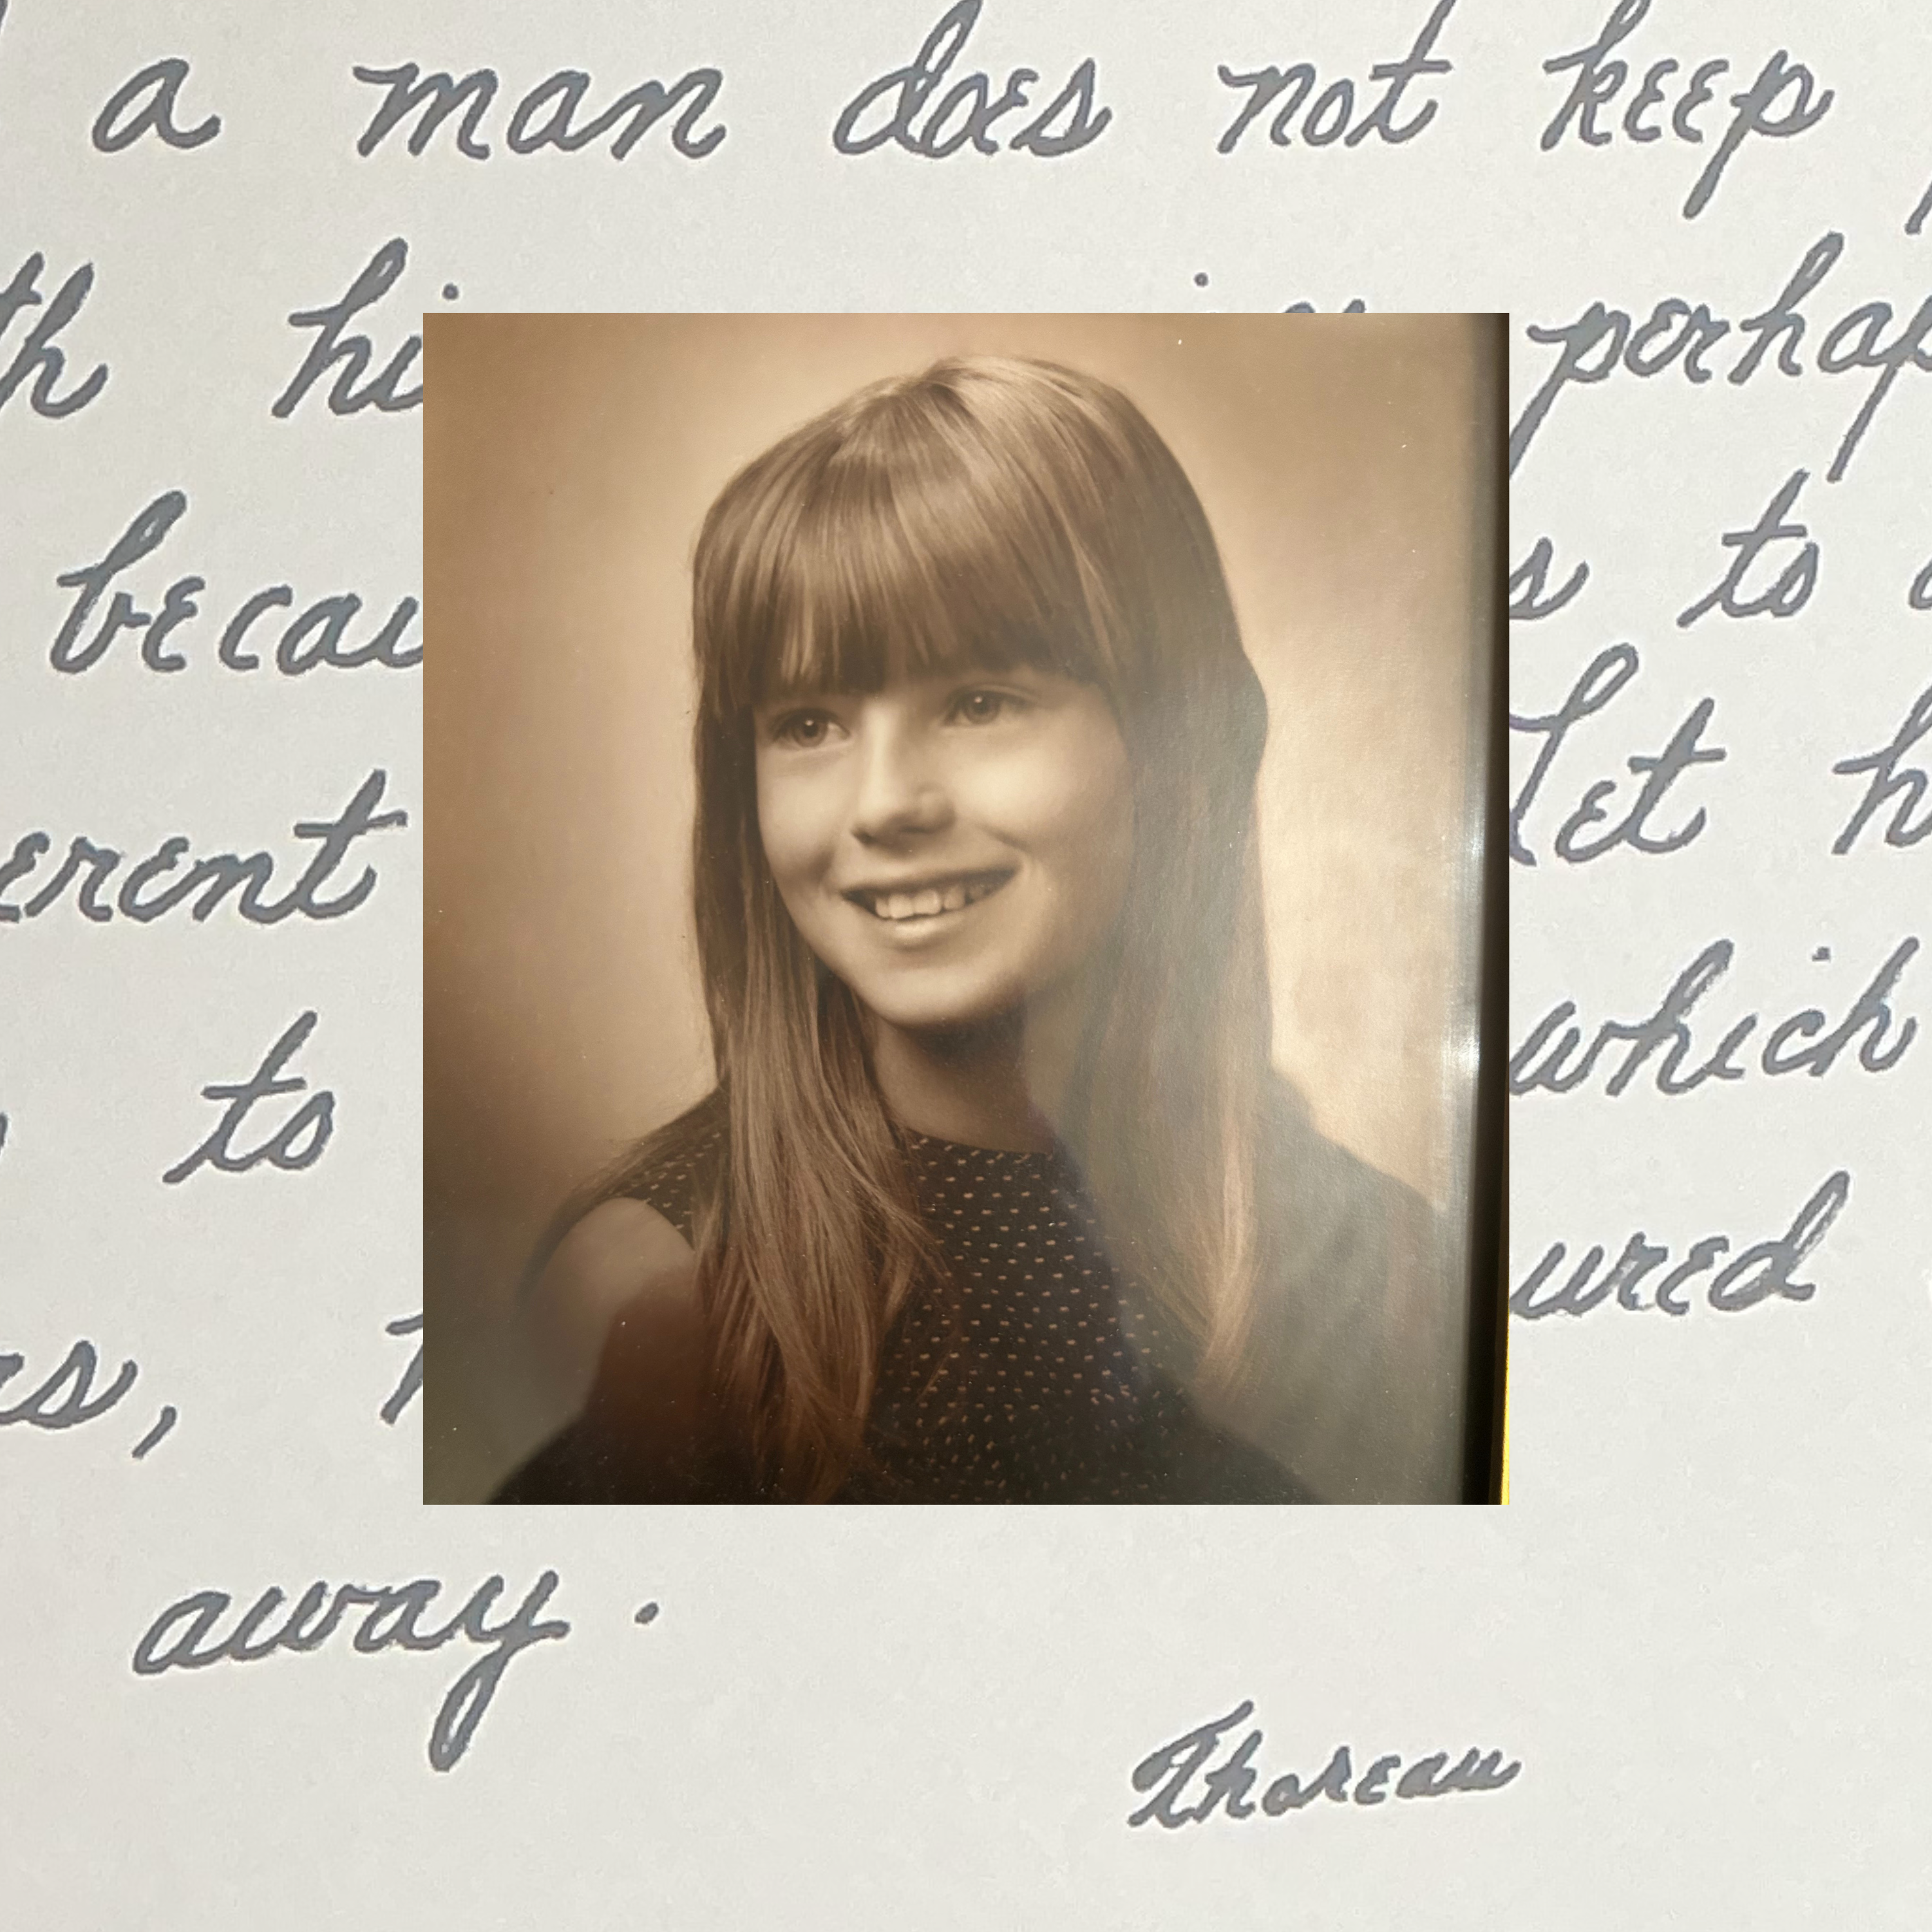 a man does not keep
th hi perhap
becau s to
erent Let h
to which
es, ured
away.
Thoreau